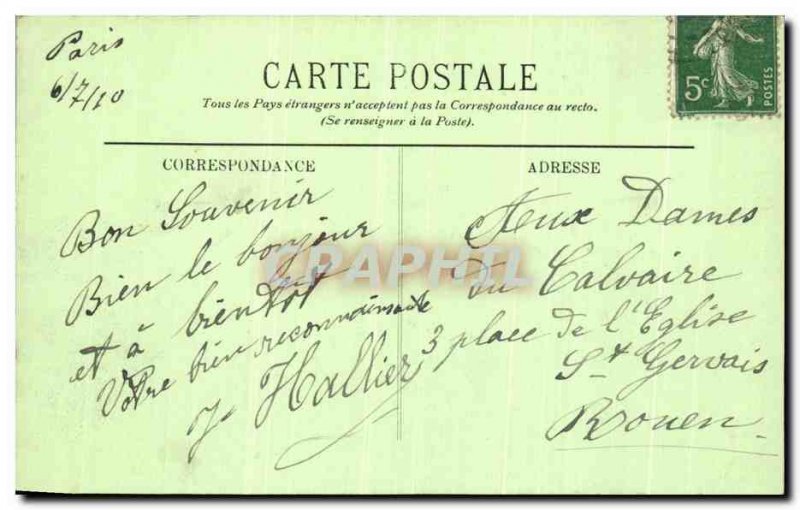 Paris
6/7/10
CARTE POSTALE
Tous les Pays étrangers n'acceptent pas la Correspondance au recto.
(Se renseigner à la Poste).
5c
POSTES
CORRESPONDANCE
Bon Souvenir
Bien le bonjour
et à bientôt
Votre bien reconnaissante
J. Hallier
ADRESSE
Aux Dames
du Calvaire
3 place de l'Eglise
St Gervais
Rouen
CPAPHIL